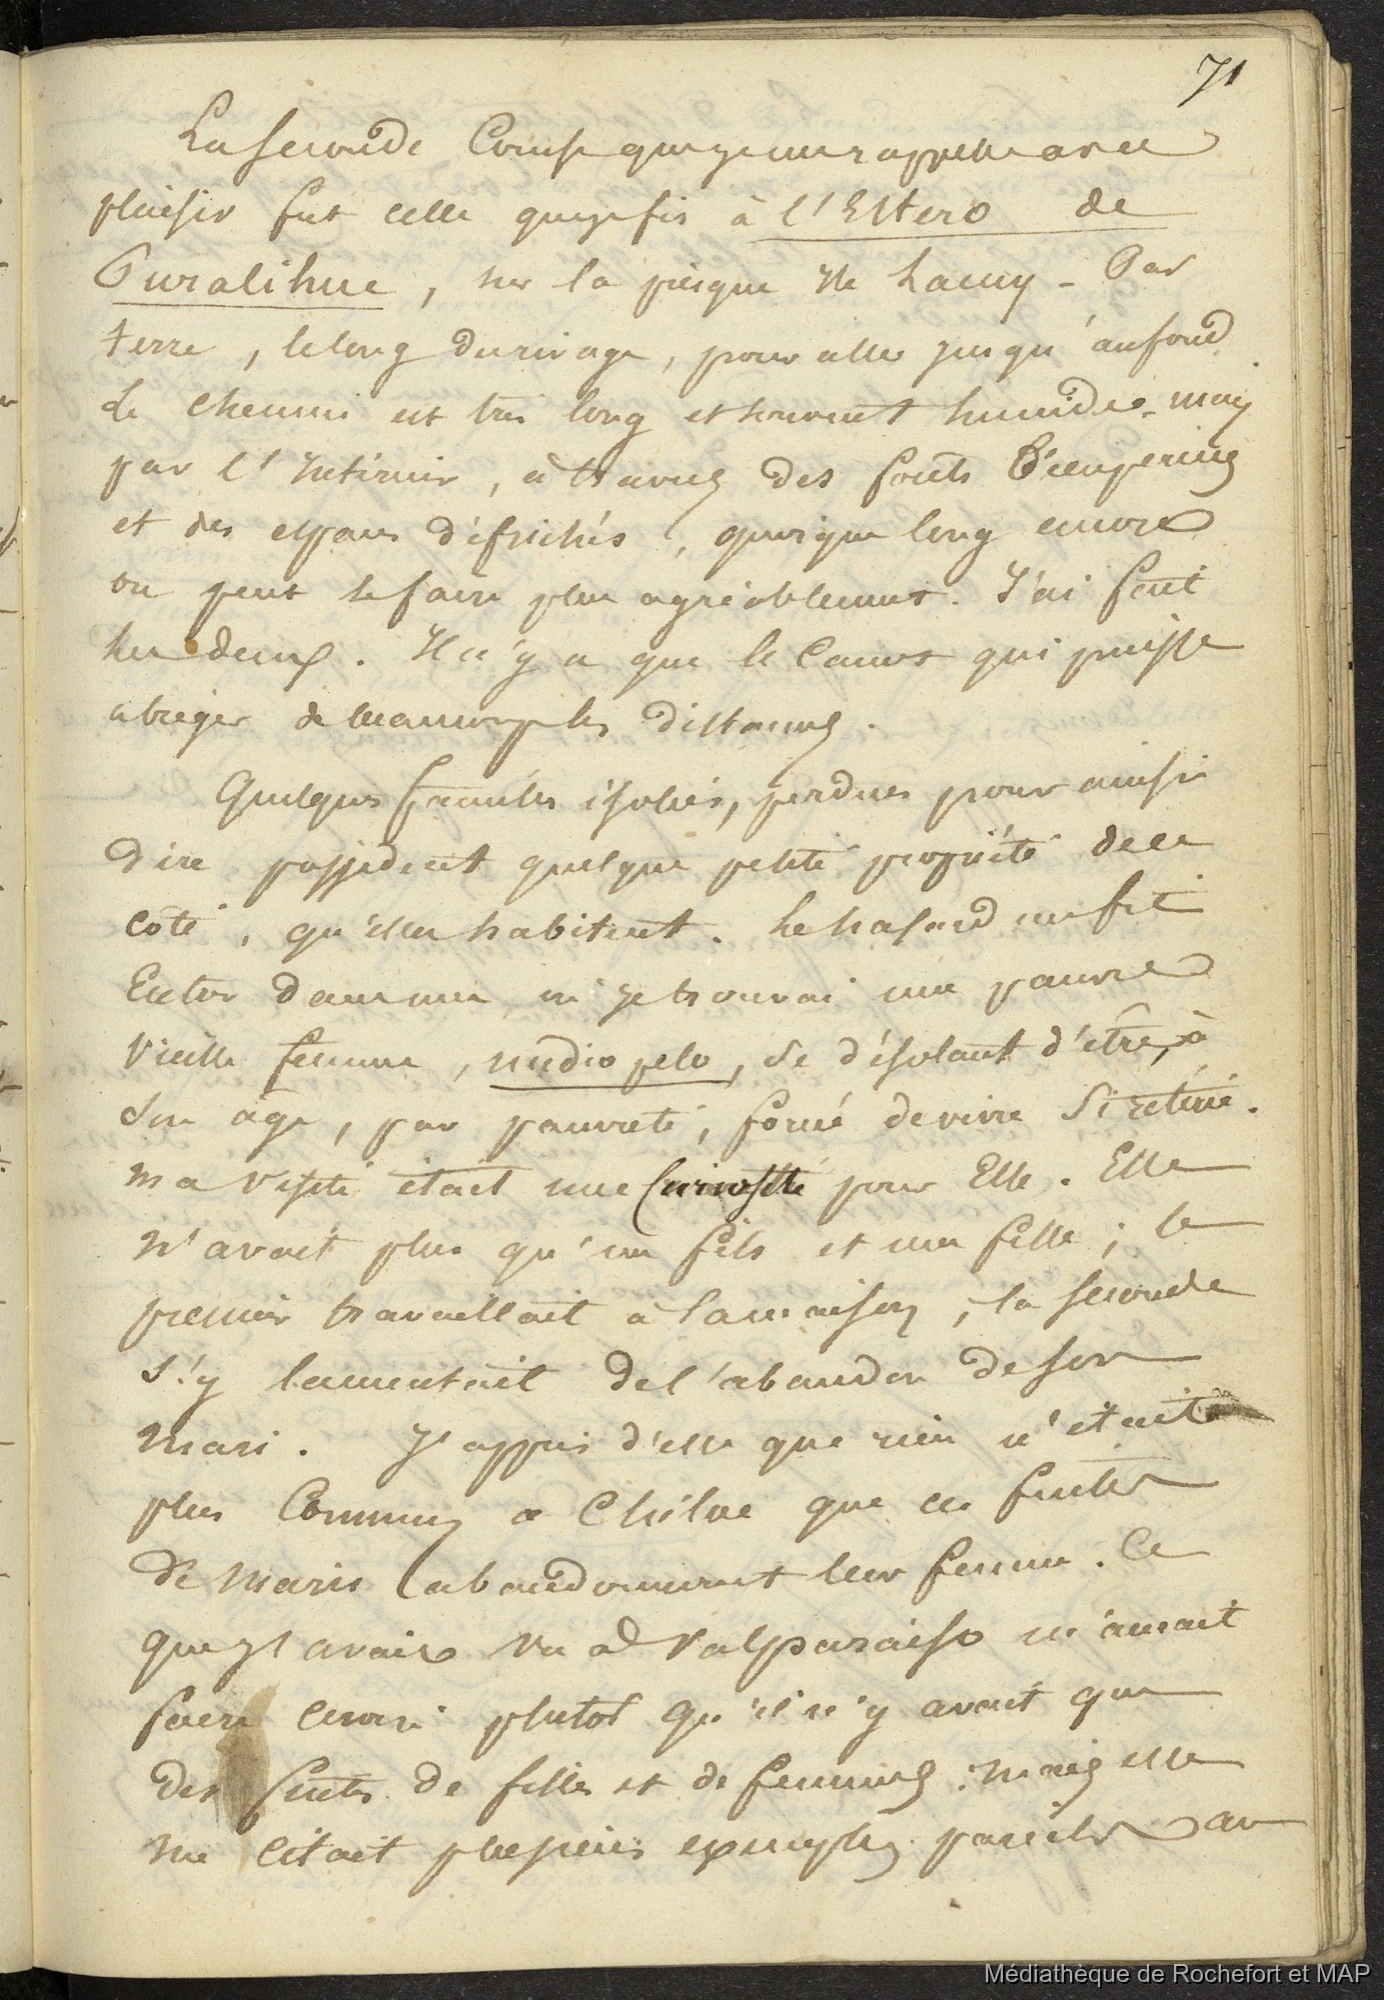 71
La seconde Course que je me rappelle avec
plaisir fut celle que je fis à l'Estero de
Puralihue, sur la pirogue de Lacuy - Par
terre, le long du rivage, pour aller jusqu'au fond
le chemin est très long et souvent humide - mais
par l'Intérieur, à travers des forêts
et des espaces défrichés, quoique long encore
on peut le faire plus agréablement. J'ai fait
les deux. Il n'y a que le Canot qui puisse
abréger de beaucoup les distances.
Quelques familles isolées, perdues pour ainsi
dire possèdent quelque petite propriété de ce
côté, qu'elles habitent. Le hasard me fit
Entrer dans une où je trouvai une pauvre
Vieille femme, medio pelo, se désolant d'être, à
son âge, par pauvreté, forcée de vivre si retirée.
Ma visite était une Curiosité pour Elle. Elle
n'avait plus qu'un fils et une fille ; le
premier travaillait à la maison, la seconde
s'y lamentait de l'abandon de son
Mari. J'appris d'elle que rien n'était
plus Commun à Chiloe que ces fuites
de Maris abandonnant leur femme. Ce
que j'avais vu à Valparaiso m'aurait
faire croire plutôt qu'il n'y avait que
des fuites de filles et de femmes : Mais elle
me citait plusieurs exemples pareils au
Médiathèque de Rochefort et MAP